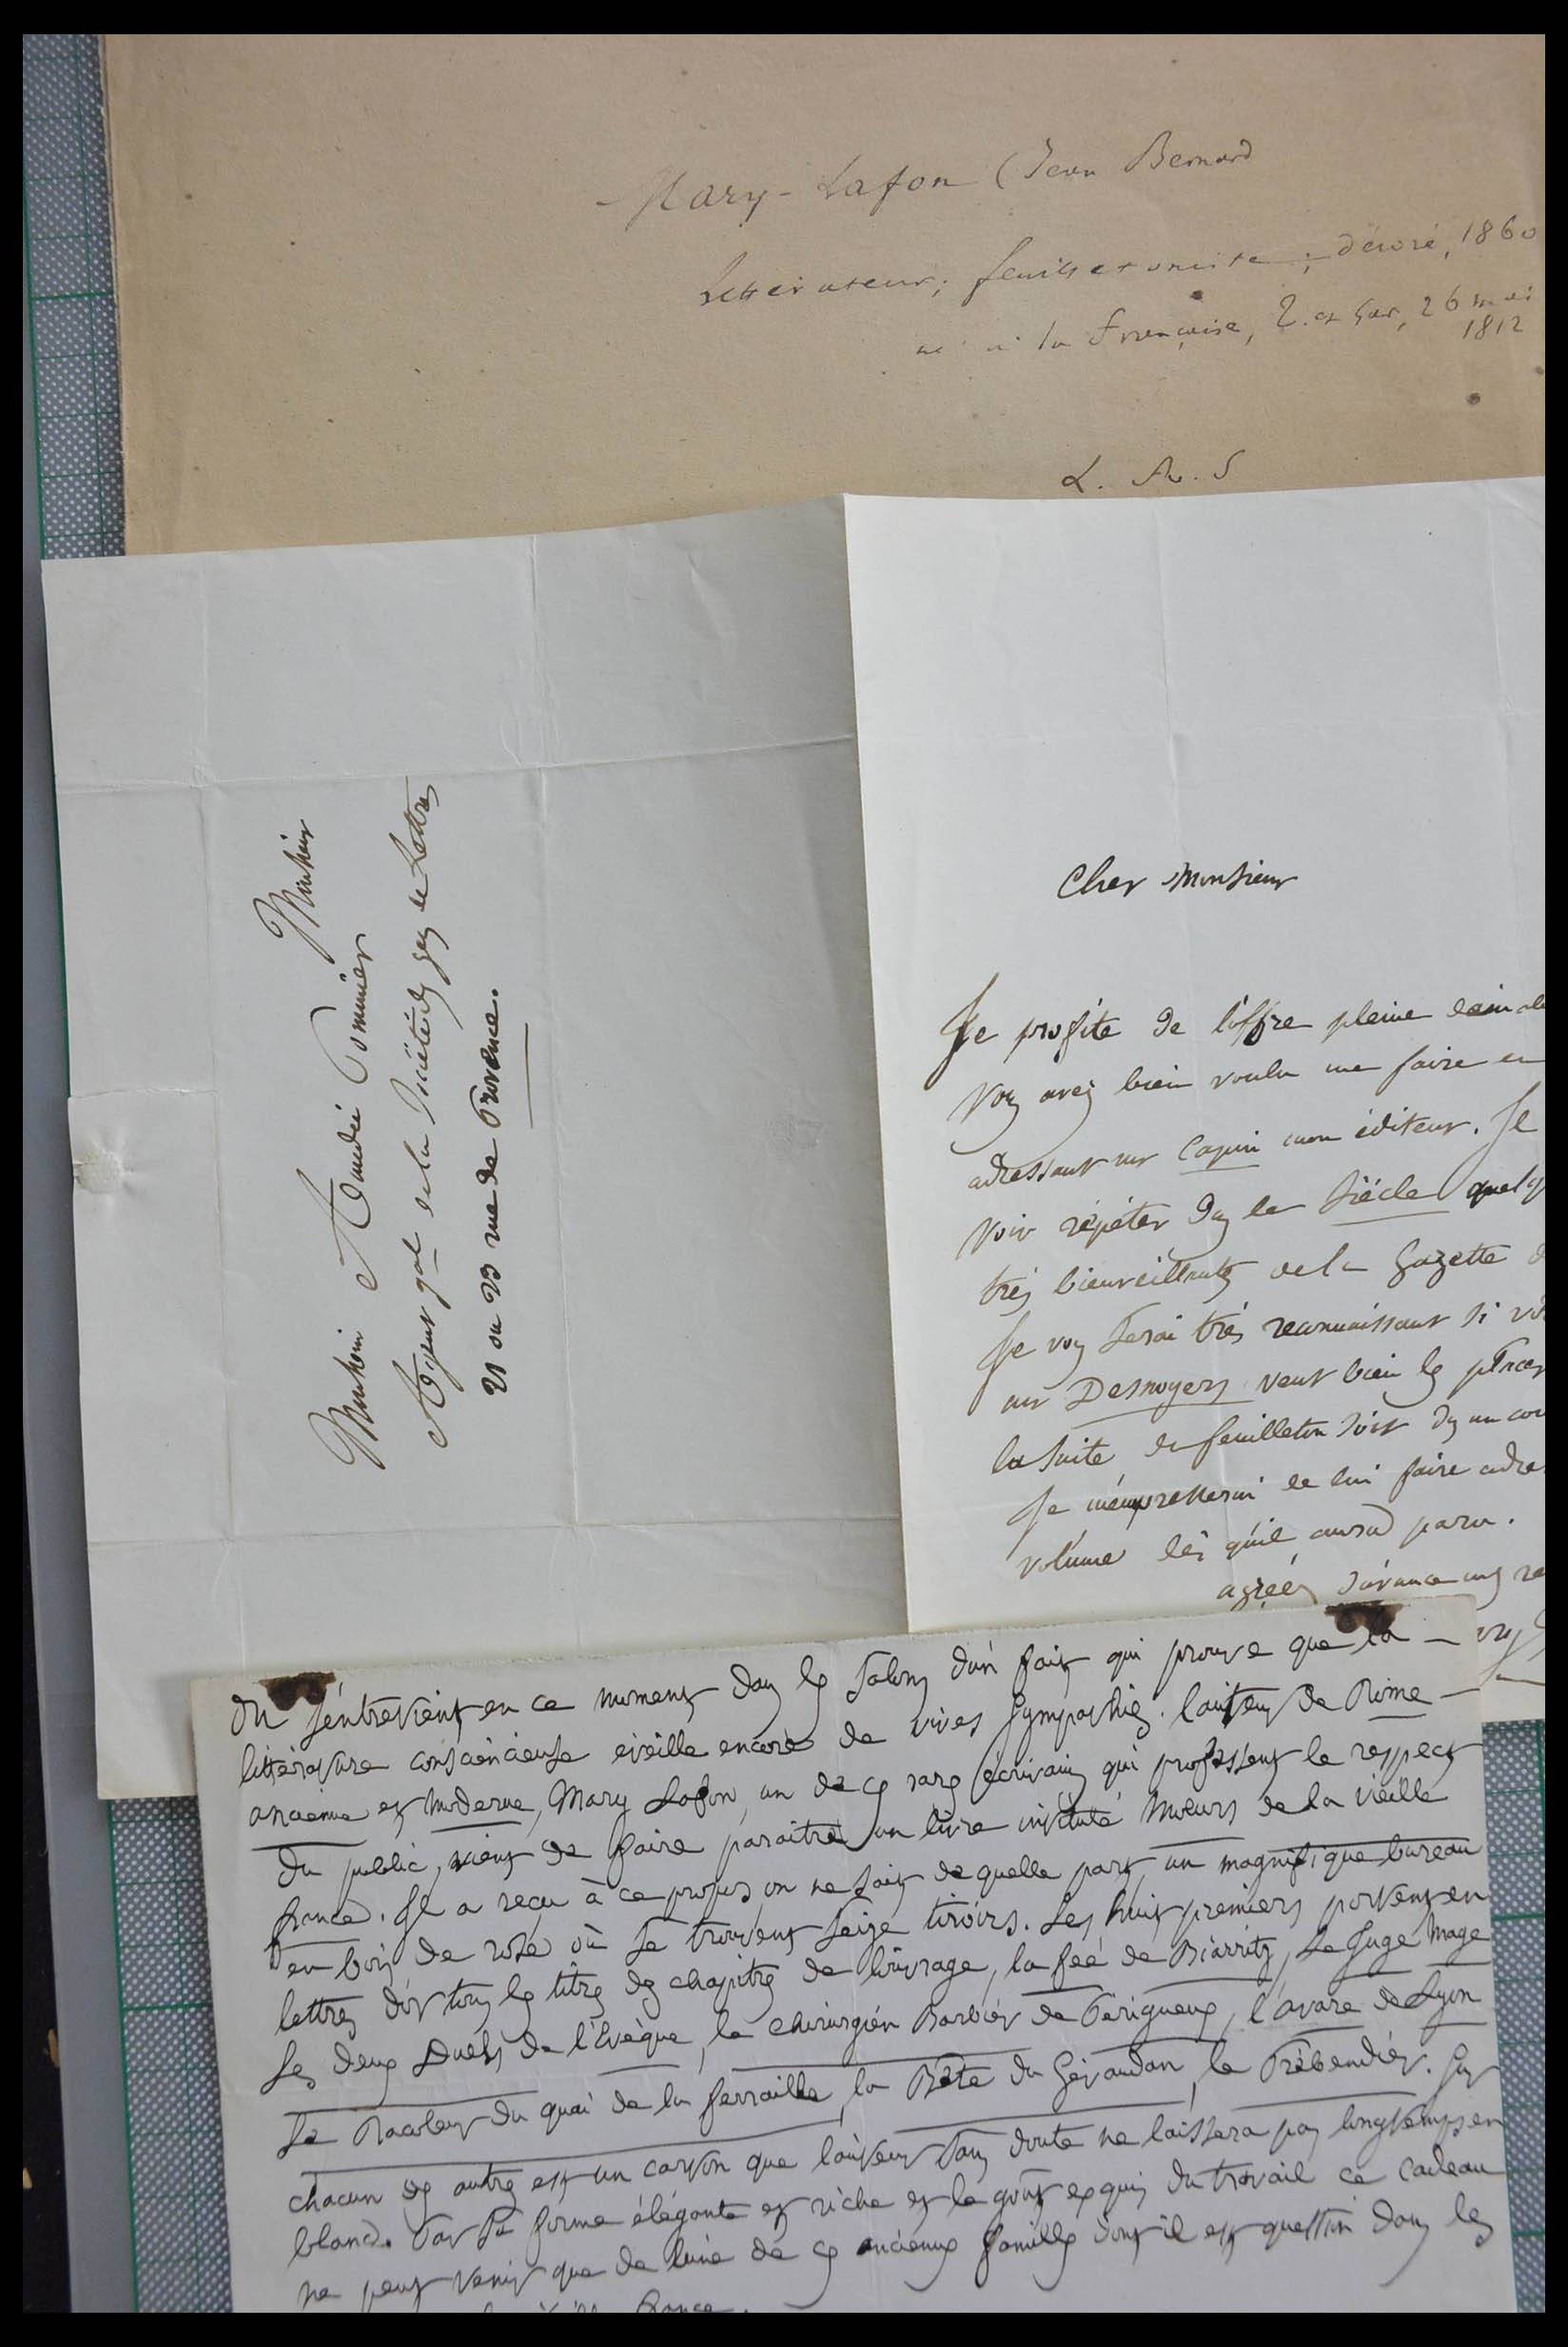 Mary-Lafon (Jean Bernard
Littérateur; feuilletoniste; décoré, 1860
né à la Française, T. et Gar, 26 mai
1812
L. A. S
Monsieur
Monsieur Amédée Pommier
Agent gal de la Société des gens de Lettres
21 ou 23 rue de Provence.
Cher Monsieur
Je profite de l'offre pleine
Vous avez bien voulu me faire en
adressant mr mon éditeur. Je
voir répéter dans le Siècle
très bienveillantes de la Gazette
Je vous serai très reconnaissant si
mr Desnoyers veut bien les placer
la suite du feuilleton soit dans un
Je m'empresserai de lui faire
volume dès qu'il aura paru.
agréez d'avance mes
On s'entretient en ce moment dans les salons d'un fait qui prouve que la
littérature consciencieuse éveille encore de vives sympathies. l'auteur de Rome
ancienne et moderne, Mary Lafon, un de ces rares écrivains qui professent le respect
du public, vient de faire paraitre un livre intitulé Moeurs de la vieille
france. Il a reçu à ce propos, on ne sait de quelle part, un magnifique bureau
en bois de rose où se trouvent seize tiroirs. Les huit premiers portent en
lettres d'or tous les titres des chapitres de l'ouvrage, la fée de Biarritz, Le Juge Mage
Les deux Duels de l'Evêque, le chirurgien Barbier de Périgueux, l'avare de Lyon
Le Racoleur du quai de la ferraille, la Bête du Gévaudan, le Prébendier. Sur
chacun des autres est un carton que l'auteur sans doute ne laissera pas longtemps en
blanc. Par sa forme élégante et riche et le goût exquis du travail ce cadeau
ne peut venir que de l'une de ces anciennes familles dont il est question dans les
france.